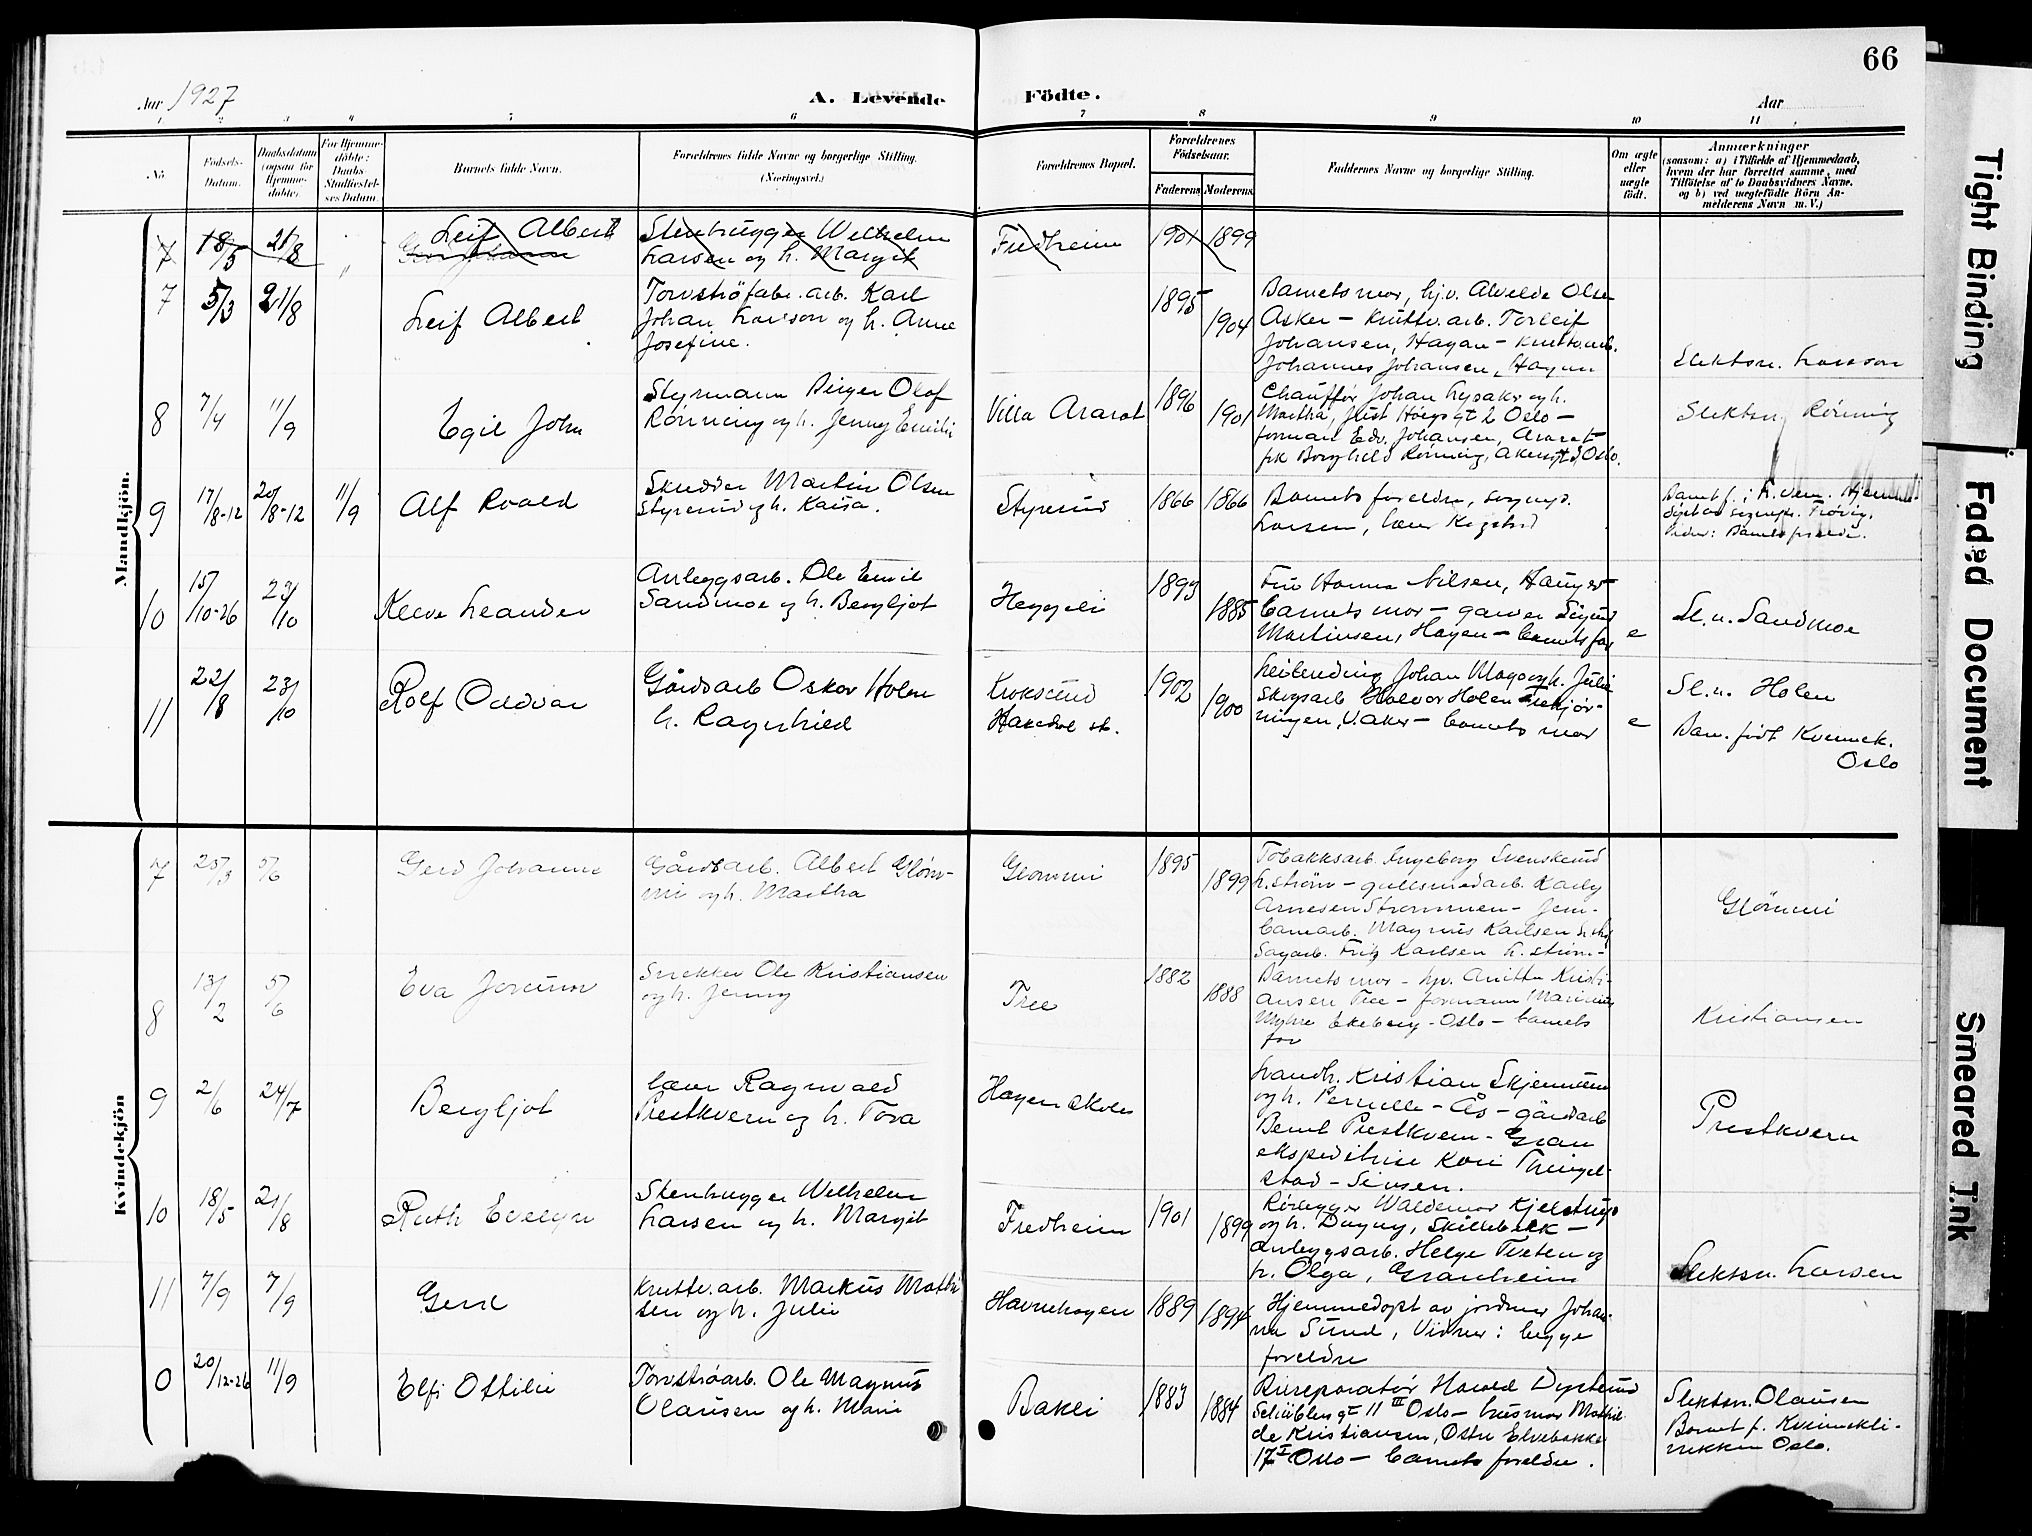 66
Aar 1927
A. Levende Födte.
Aar
1 2 3 4 5 6 7 8 9 10 11
No
Fødsels-Datum.
Daabsdatum (ogsaa for Hjemme-døbte).
For Hjemme-døbte: Daabs-Stadfæstel-ses Datum.
Barnets fulde Navn.
Forældrenes fulde Navne og borgerlige Stilling. (Næringsvei.)
Forældrenes Bopæl.
Forældrenes Fødselsaar.
Faderens. Moderens.
Faddernes Navne og borgerlige Stilling.
Om ægte eller uægte født.
Anmærkninger
(saasom: a) i Tilfælde af Hjemmedaab, hvem der har forrettet samme, med Tilføielse af to Daabsvidners Navne, og b) ved uægtefødte Børn An-melderens Navn m. V.)
Mandkjön.
7 18/5 21/8 Leif Albert
Stenhugger Wilhelm
Larsen og h. Margit
Fredheim 1901 1899
7 5/3 21/8 Leif Albert
Torvströfabr. arb. Karl
Johan Larsson og h. Anne
Josefine.
1895 1904
Barnets mor, hjv. Alvilde Olsen
Asker – Kruttv. arb. Torleif
Johansen, Hagan – Kruttv. arb.
Johannes Johansen, Hagan
Slektsn. Larsson
8 7/4 11/9 Egil John
Styrmann Birger Olof
Rönning og h. Jenny Emilie
Villa Ararat 1896 1901
Chauffør Johan Lysaker og h.
Martha, Just Høegs gt 2 Oslo –
forman Edv. Johansen, Ararat
frk Borghild Rønning, Akersgt Oslo.
Slektsn. Rönning
9 17/8-12 20/8-12 11/9 Alf Roald
Skredder Martin Olsen
Styrerud og h. Kaisa.
Styrerud 1866 1866
Barnets foreldre, sognepr.
Larsen, lærer Kogstad
10 15/10-26 23/10 Kleve Leander
Anleggsarb. Ole Emil
Sandmoe og h. Bergljot
Heggeli 1893 1885
Fru Hanna Nilsen, Hauger
barnets mor – garver Sigurd
Martinsen, Hagen – barnets far
e
Sl. n. Sandmoe
11 22/8 23/10 Rolf Oddvar
Gårdsarb Oskar Holen
h. Ragnhild
Kroksund
Hakedal st.
1902 1900
Leilending Johan Mago og h. Julie
Skogsarb Halvor Holen
V. Aker – barnets mor
e
Sl. n. Holen
Barn. født Kvinnek.
Oslo
Kvindekjön
7 25/3 5/6 Gerd Johanne
Gårdsarb. Albert Glöm-
mi og h. Martha
Glommi 1895 1899
Tobakksarb. Ingeborg Svenskerud
L.strøm – gullsmedarb. Karly
Arnesen Strømmen – Jern-
banearb. Magnus Karlsen
Sagarb. Fritz Karlsen L. strøm-
Glömmi
8 13/2 5/6 Eva Jorunn
Snekker Ole Kristiansen
og h. Jenny
Tree 1882 1888
Barnets mor – hjv. Anitta Kristi-
ansen Tree – formann Marinius
Myhre Ekeberg – Oslo – barnets
far
Kristiansen
9 2/6 24/7 Bergljot
Lærer Ragnvald
Prestkvern og h. Tora
Hagen skole
Landh. Kristian Skjennum
og h. Pernille – Ås – gårdarb
Bernt Prestkvern – Gran
ekspeditrise Kari Thingel-
stad – Sinsen.
Prestkvern
10 18/5 21/8 Ruth Evelyn
Stenhugger Wilhelm
Larsen og h. Margit
Fredheim 1901 1899
Rørlegger Waldemar Kjelstrup
og h. Dagny, Skillebekk –
anleggsarb. Helge Tveten og
h. Olga, Granheim
Slektsn. Larsen
11 7/9 7/9 Gerd
Kruttv. arb. Markus Mathi
sen og h. Julie
Havnehagen 1889 1894
Hjemmedøpt av jordmor Johan-
na Sund, Vidner: begge
foreldre
0 20/12-26 11/9 Elfi Ottilie
Torvströarb. Ole Magnus
Olaussen og h. Marie
Bakli 1883 1884
Bilreparatør Harald Dysterud
Schüblers gt 11 III Oslo – husmor Mathil-
de Kristiansen, Østre Elvebakke
17 I Oslo – barnets foreldre.
Slektsn. Olausen
Barnet f. Kvinnekli-
nikken Oslo.
Tight Binding
Faded Document
Smeared Ink